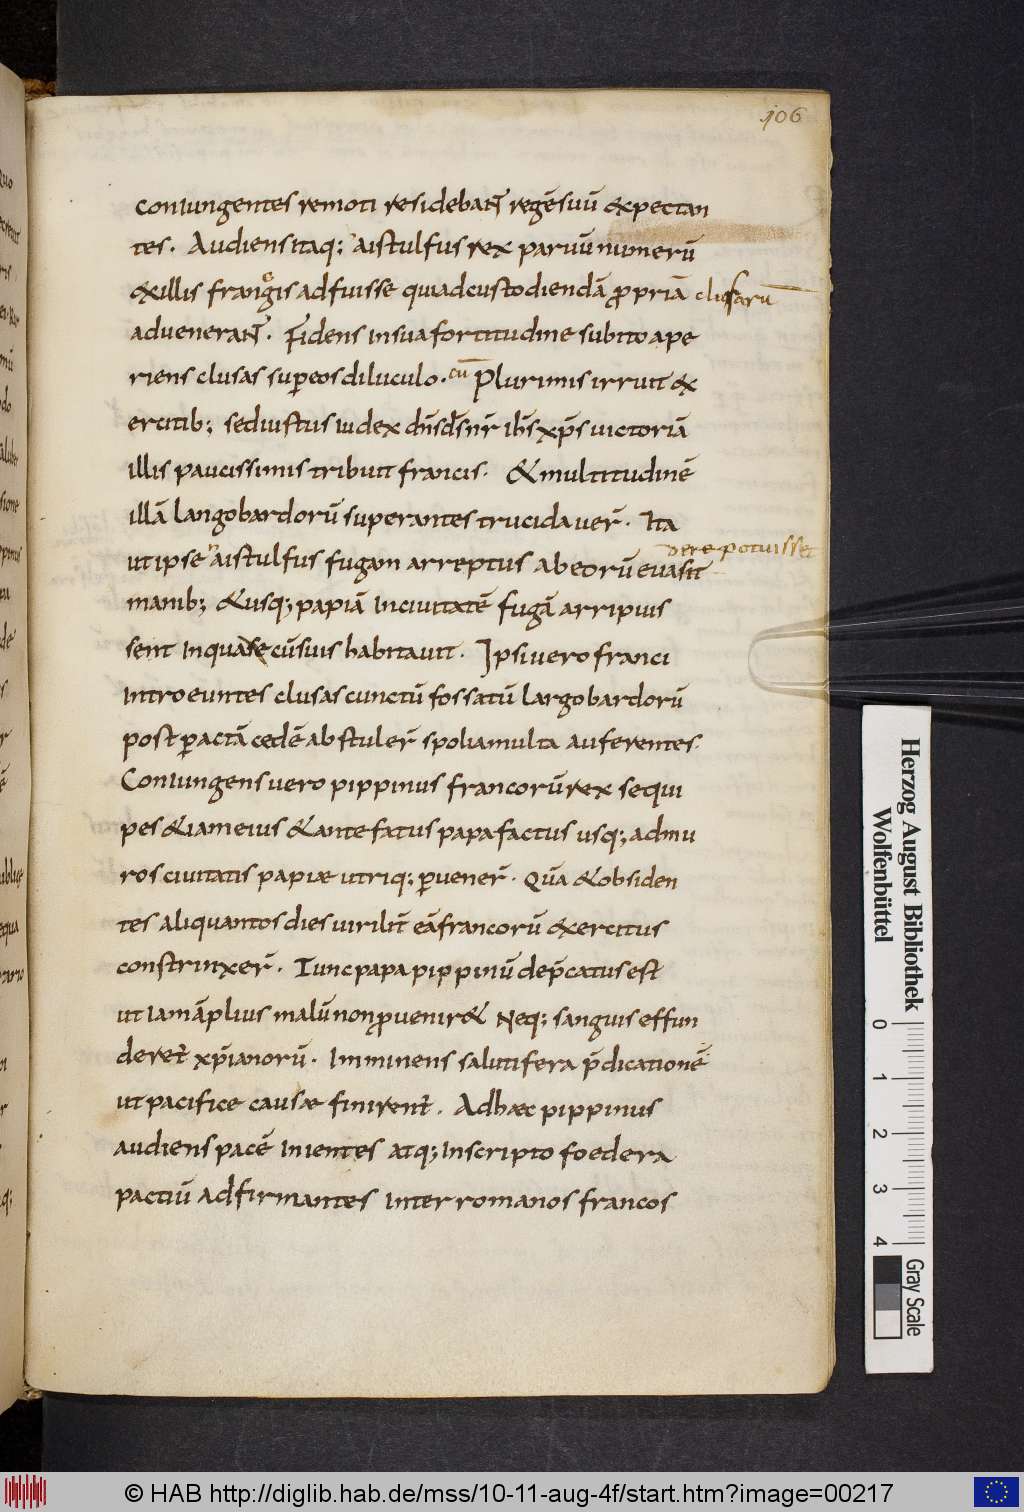 106
coniungentes remoti residebant regē suū expectan
tes. Audiens itaq; aistulfus rex paruū numerū
ex illis frangis adfuisse qui ad custodiendā propriā clusarū
aduenerant. Fidens in sua fortitudine subito ape
riens clusas super eos diluculo. cū Plurimis irruit ex
ercitib; sed iustus iudex dn̄s ds̄ nr̄ ih̄s xp̄s uictoriā
illis paucissimis tribuit francis. & multitudinē
illā langobardorū superantes trucidauer̄. Ita
ut ipse aistulfus fugam arreptus ab eorū euasit
dere potuisset
manib; & usq; papiā in ciuitatē fugā arripuis
sent In qua se cū suis habitauit. Ipsi uero franci
Introeuntes clusas cunctū fossatū largobardorū
post peractā cedē abstuler̄ spolia multa auferentes.
Coniungens uero pippinus francorū rex sequi
pes & iam eius & ante fatus papa factus usq; ad mu
ros ciuitatis papiæ utriq; peruener̄. Quā & obsiden
tes aliquantos dies uirilit̄ eā francorū exercitus
constrinxer̄. Tunc papa pippinū dep̄catus est
ut Iam āplius malū non proueniret Neq; sanguis effun
deret̄ xp̄ianorū. Imminens salutifera p̄dicationē
ut pacifice causæ finirent̄. Ad hæc pippinus
audiens pacē Inientes atq; In scripto foedera
pactiū adfirmantes Inter romanos francos
Herzog August Bibliothek
Wolfenbüttel
0 1 2 3 4
Gray Scale
© HAB http://diglib.hab.de/mss/10-11-aug-4f/start.htm?image=00217